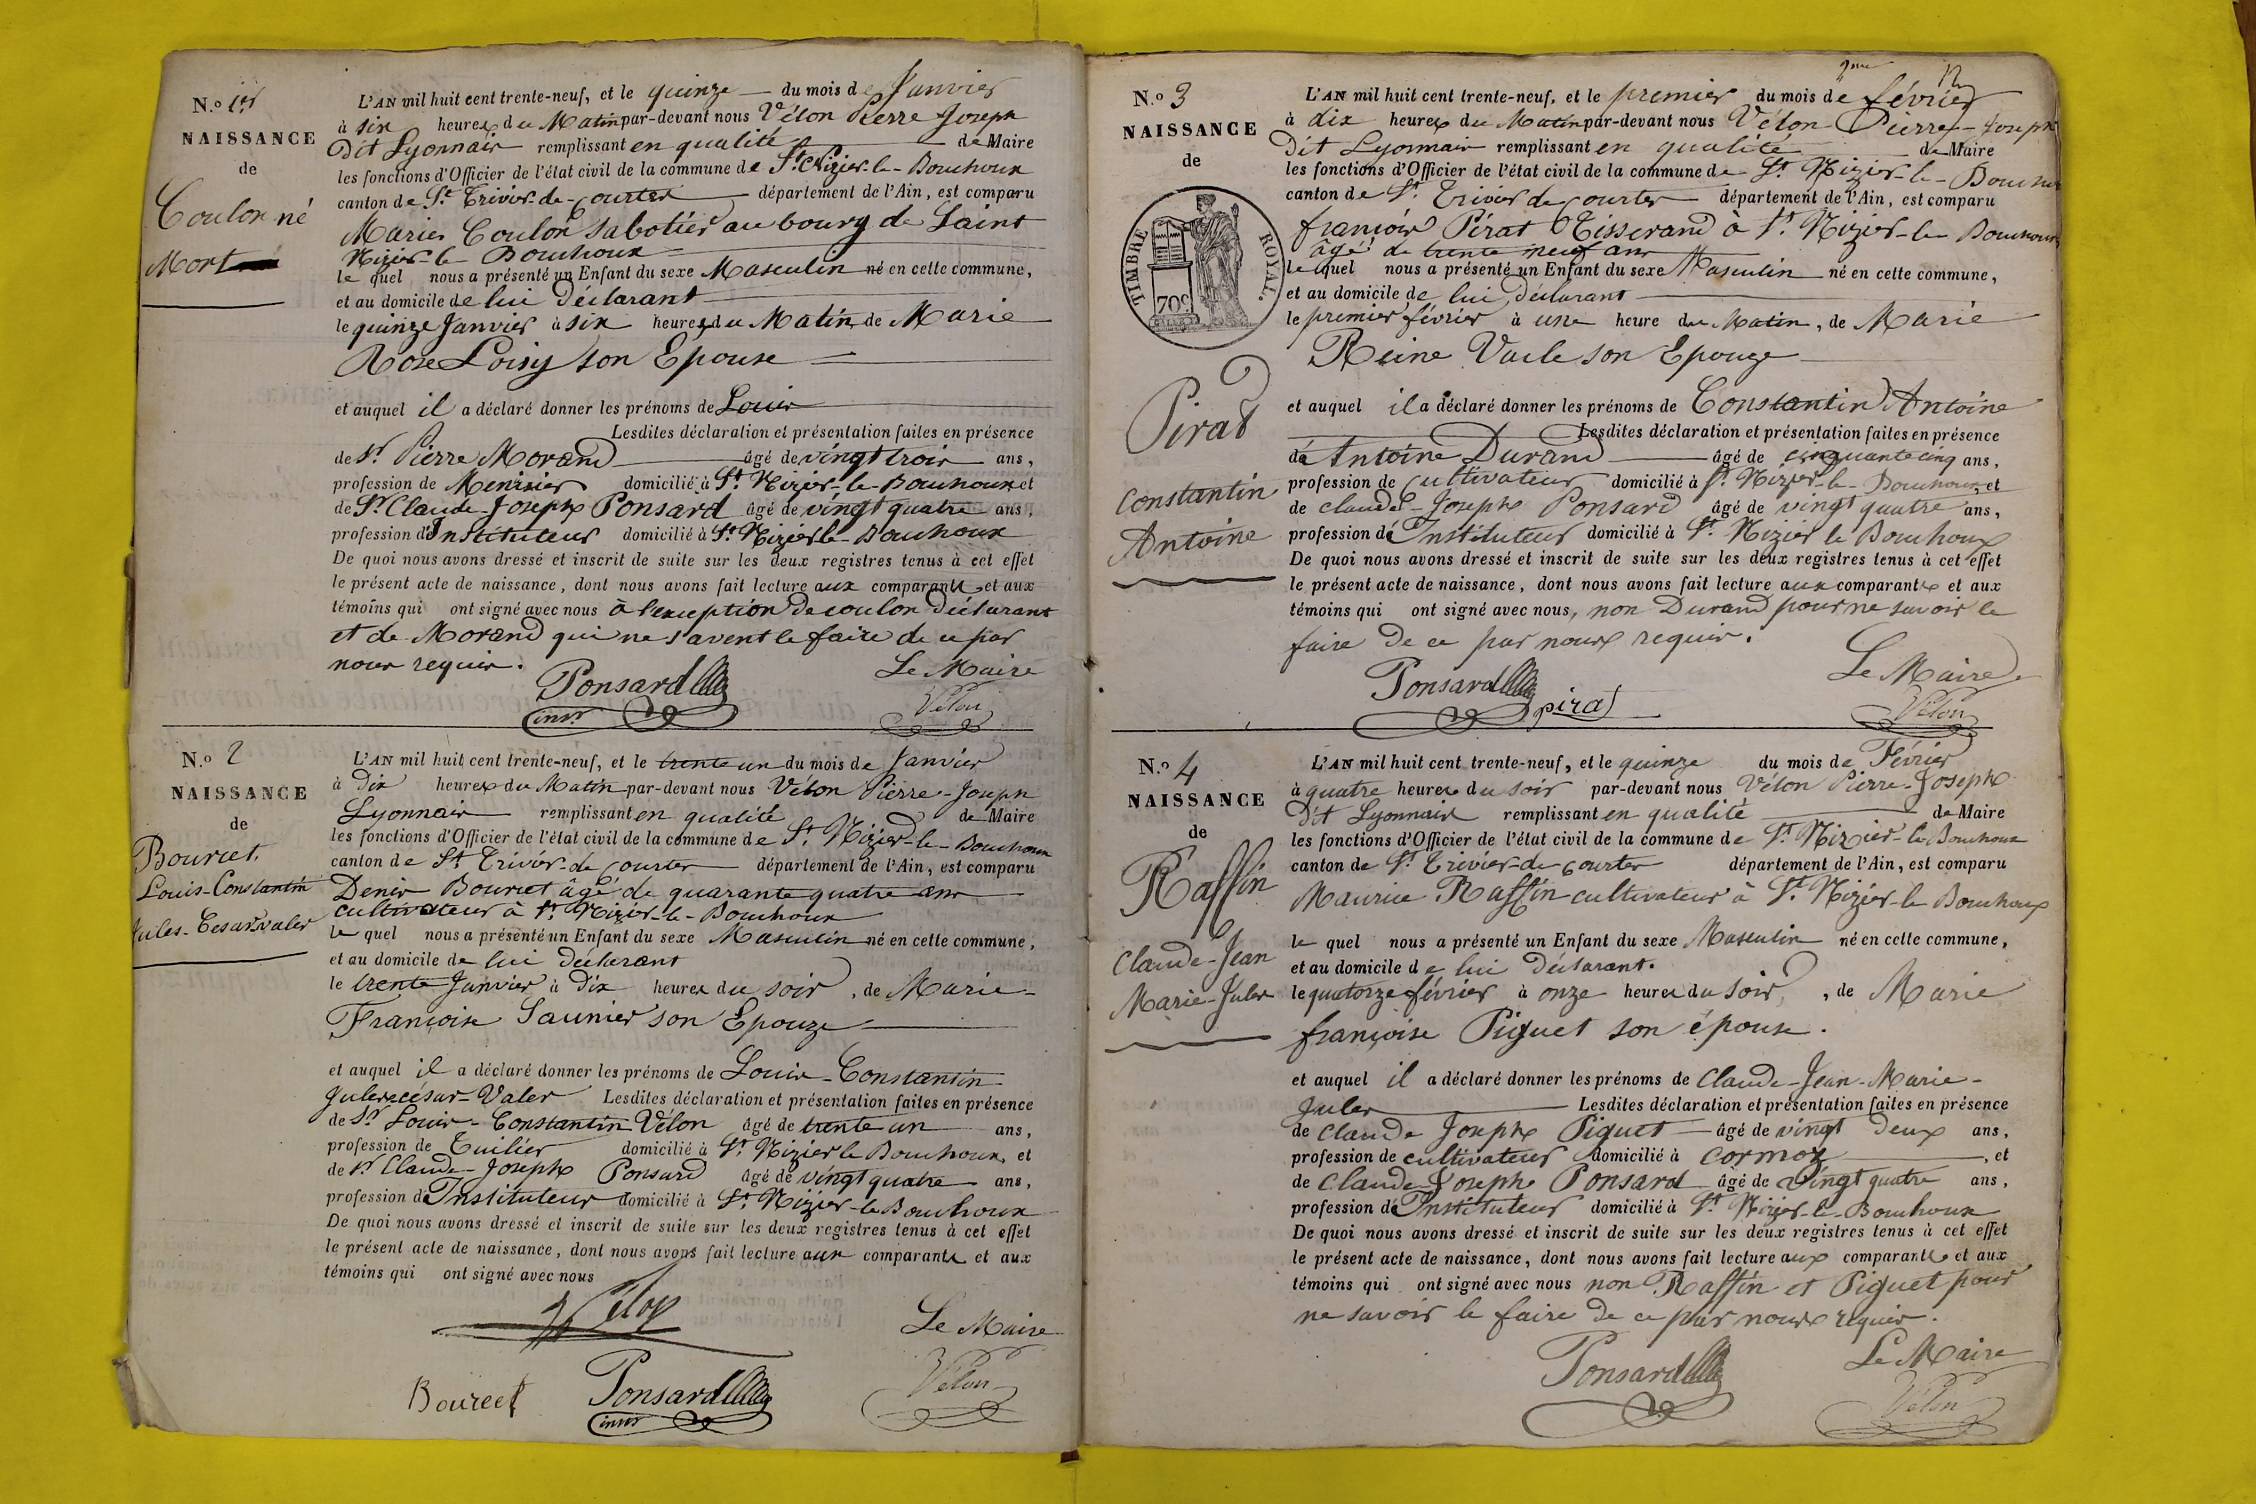 N.o 1er
NAISSANCE
de
Coulon né
Mort
L'AN mil huit cent trente-neuf, et le quinze du mois de Janvier
à six heures du Matin par-devant nous Vélon Pierre Joseph
Dit Lyonnais remplissant en qualité de Maire
les fonctions d'Officier de l'état civil de la commune de St Nizier-le-Bouchoux
canton de St Trivier-de-Courtes département de l'Ain, est comparu
Marie Coulon Sabotier au bourg de Saint
Nizier-le-Bouchoux
le quel nous a présenté un Enfant du sexe Masculin né en cette commune,
et au domicile de lui Déclarant
le quinze Janvier à six heures du Matin, de Marie
Rose Loisy son Epouse
et auquel il a déclaré donner les prénoms de Louis
Lesdites déclaration et présentation faites en présence
de Sr Pierre Morand âgé de vingt trois ans,
profession de Menisier domicilié à St Nizier-le-Bouchoux et
de Sr Claude-Joseph Ponsard âgé de vingt quatre ans,
profession d'Instituteur domicilié à St Nizier-le-Bouchoux
De quoi nous avons dressé et inscrit de suite sur les deux registres tenus à cet effet
le présent acte de naissance, dont nous avons fait lecture aux comparants et aux
témoins qui ont signé avec nous à l'exception de Coulon Déclarant
et de Morand qui ne savent le faire de ce par
nous requis.
Ponsard
instr
Le Maire
Vélon
N.o 2
NAISSANCE
de
Bourcet,
Louis-Constantin
Jules-Cesar Valer
L'AN mil huit cent trente-neuf, et le trente un du mois de Janvier
à Dix heures du Matin par-devant nous Vélon Pierre-Joseph
Lyonnais remplissant en qualité de Maire
les fonctions d'Officier de l'état civil de la commune de St Nizier-le-Bouchoux
canton de St Trivier-de-Courtes département de l'Ain, est comparu
Denis Bourcet âgé de quarante quatre ans
cultivateur à St Nizier-le-Bouchoux
le quel nous a présenté un Enfant du sexe Masculin né en cette commune,
et au domicile de lui Déclarant
le trente Janvier à Dix heures du soir, de Marie-
Françoise Saunier son Epouze
et auquel il a déclaré donner les prénoms de Louis-Constantin
Jules césar-Valer Lesdites déclaration et présentation faites en présence
de Sr Louis-Constantin Vélon âgé de trente un ans,
profession de Tuilier domicilié à St Nizier le Bouchoux, et
de Sr Claude-Joseph Ponsard âgé de vingt quatre ans,
profession d'Instituteur domicilié à St Nizier-le Bouchoux
De quoi nous avons dressé et inscrit de suite sur les deux registres tenus à cet effet
le présent acte de naissance, dont nous avons fait lecture aux comparants et aux
témoins qui ont signé avec nous
Le Maire
Bourcet
Ponsard
instr
Vélon
12
2me
N.o 3
NAISSANCE
de
TIMBRE ROYAL.
70c
Pirat
Constantin
Antoine
L'AN mil huit cent trente-neuf, et le premier du mois de février
à dix heures du Matin par-devant nous Vélon Pierre-Joseph
Dit Lyonnais remplissant en qualité de Maire
les fonctions d'Officier de l'état civil de la commune de St Nizier-le-Bouchoux
canton de St Trivier de Courtes département de l'Ain, est comparu
françois Pirat Tisserand à St Nizier-le-Bouchoux
âgé de trente neuf ans
le quel nous a présenté un Enfant du sexe Masculin né en cette commune,
et au domicile de lui Déclarant
le premier février à une heure du Matin, de Marie
Reine Vacle son Epouze
et auquel il a déclaré donner les prénoms de Constantin Antoine
Lesdites déclaration et présentation faites en présence
de Antoine Durand âgé de cinquante cinq ans,
profession de Cultivateur domicilié à St Nizier-le-Bouchoux, et
de claude-Joseph Ponsard âgé de vingt quatre ans,
profession d'Instituteur domicilié à St Nizier le Bouchoux
De quoi nous avons dressé et inscrit de suite sur les deux registres tenus à cet effet
le présent acte de naissance, dont nous avons fait lecture aux comparants et aux
témoins qui ont signé avec nous, non Durand pour ne savoir le
faire de ce par nous requis.
Ponsard
pirat
Le Maire
Vélon
N.o 4
NAISSANCE
de
Raffin
Claude-Jean
Marie-Jules
L'AN mil huit cent trente-neuf, et le quinze du mois de Février
à quatre heures du soir par-devant nous Vélon Pierre-Joseph
Dit Lyonnais remplissant en qualité de Maire
les fonctions d'Officier de l'état civil de la commune de St Nizier-le-Bouchoux
canton de St Trivier-de-Courtes département de l'Ain, est comparu
Maurice Raffin cultivateur à St Nizier-le Bouchoux
le quel nous a présenté un Enfant du sexe Masculin né en cette commune,
et au domicile de lui Déclarant.
le quatorze février à onze heures du soir, de Marie
françoise Piguet son épouse.
et auquel il a déclaré donner les prénoms de Claude-Jean-Marie-
Jules Lesdites déclaration et présentation faites en présence
de Claude Joseph Piguet âgé de vingt deux ans,
profession de cultivateur domicilié à Cormoz, et
de Claude-Joseph Ponsard âgé de vingt quatre ans,
profession d'Instituteur domicilié à St Nizier-le-Bouchoux
De quoi nous avons dressé et inscrit de suite sur les deux registres tenus à cet effet
le présent acte de naissance, dont nous avons fait lecture aux comparants et aux
témoins qui ont signé avec nous non Raffin et Piguet pour
ne savoir le faire de ce par nous requis.
Ponsard
Le Maire
Vélon